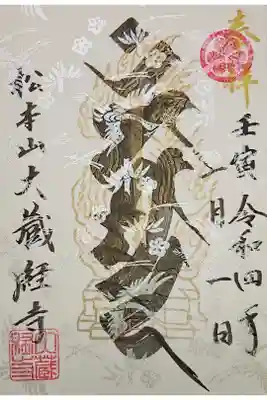 奉拝
壬寅 令和四年
一月一日
松本山大蔵経寺